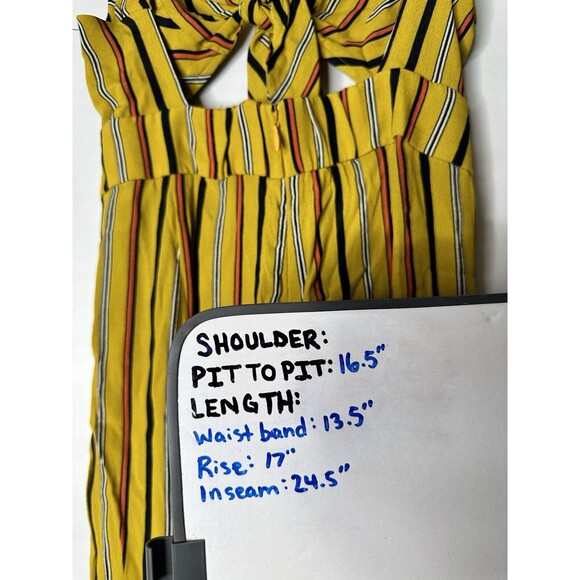 SHOULDER:
PIT TO PIT: 16.5"
LENGTH:
Waist band: 13.5"
Rise: 17"
Inseam: 24.5"